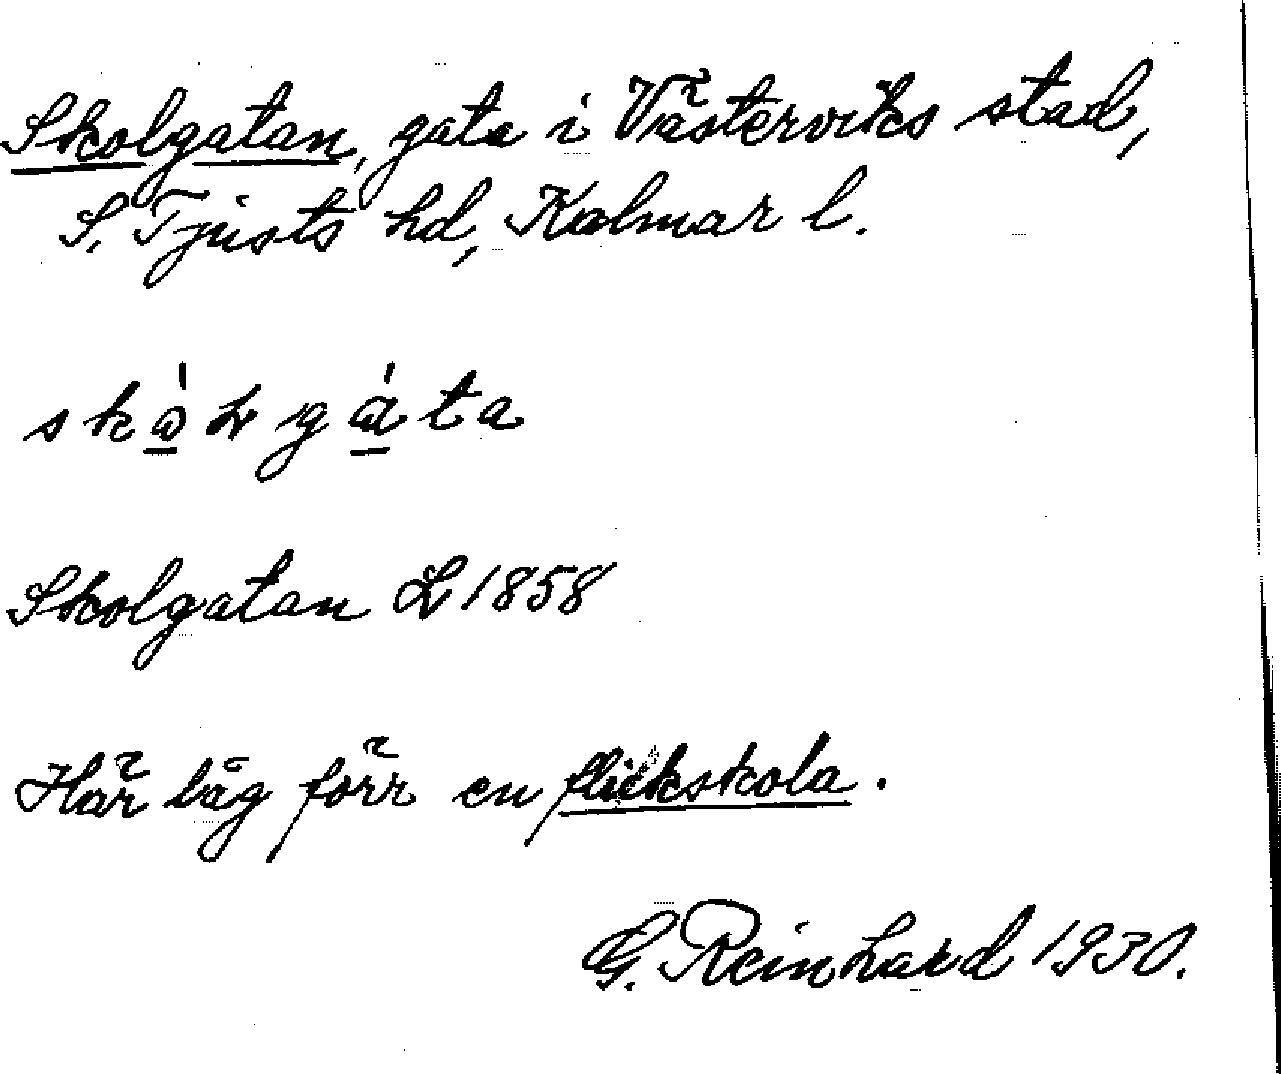 Skolgatan, gata i Västerviks stad,
S. Tjusts hd, Kalmar l.
skòLgáta
Skolgatan L 1858
Här låg förr en flickskola.
G. Reinhard 1930.